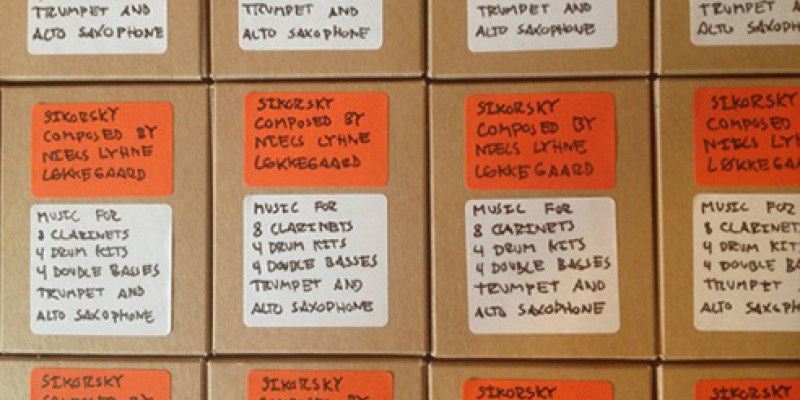 TRUMPET AND
ALTO SAXOPHONE
TRUMPET AND
ALTO SAXOPHONE
TRUMPET AND
ALTO SAXOPHONE
TRUMPET A
ALTO SAXOPHON
SIKORSKY
COMPOSED BY
NIELS LYHNE
LØKKEGAARD
MUSIC FOR
8 CLARINETS
4 DRUM KITS
4 DOUBLE BASSES
TRUMPET AND
ALTO SAXOPHONE
SIKORSKY
COMPOSED BY
NIELS LYHNE
LØKKEGAARD
MUSIC FOR
8 CLARINETS
4 DRUM KITS
4 DOUBLE BASSES
TRUMPET AND
ALTO SAXOPHONE
SIKORSKY
COMPOSED BY
NIELS LYHNE
LØKKEGAARD
MUSIC FOR
8 CLARINETS
4 DRUM KITS
4 DOUBLE BASSES
TRUMPET AND
ALTO SAXOPHONE
SIKORSKY
COMPOSED
NIELS LYH
LØKKEGAA
MUSIC FOR
8 CLARINET
4 DRUM KIT
4 DOUBLE BA
TRUMPET A
ALTO SAXOPH
SIKORSKY
COMPOSED BY
SIKORSKY
COMPOSED BY
SIKORSKY
SIKORSKY